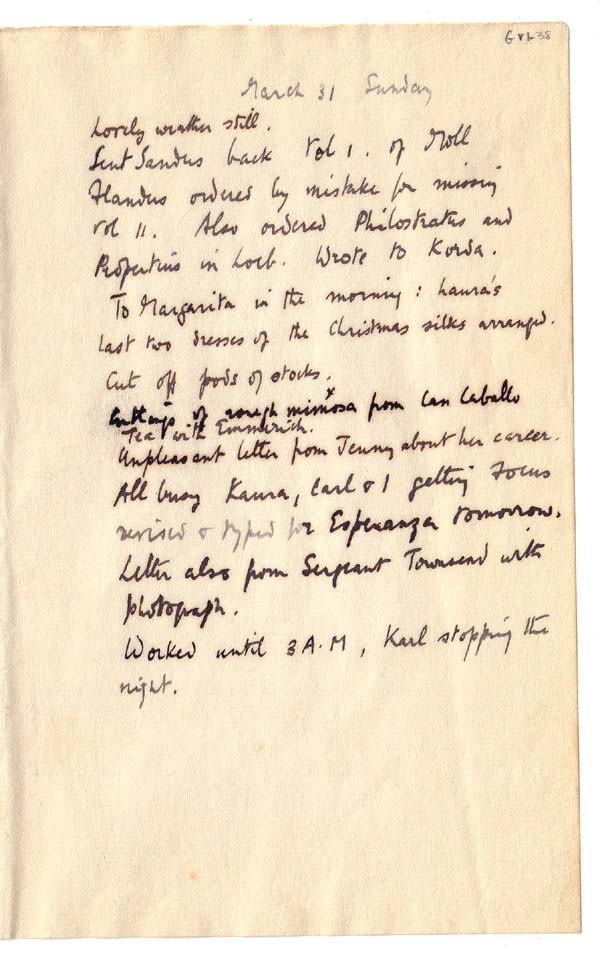 G VI-38
March 31 Sunday
Lovely weather still.
Sent Sanders back Vol I. of Moll
Flanders ordered by mistake for missing
vol II. Also ordered Philostratus and
Propertius in Loeb. Wrote to Korda.
To Margarita in the morning: Laura's
last two dresses of the Christmas silks arranged.
Cut off pods of stocks.
Cuttings of rough mimosa from Can Caballo
x
Tea with Emmerich.
Unpleasant letter from Jenny about her career.
All busy Laura, Carl & I getting Focus
revised & typed for Esperanza tomorrow.
Letter also from Sergeant Townsend with
photograph.
Worked until 3 A.M, Karl stopping the
night.